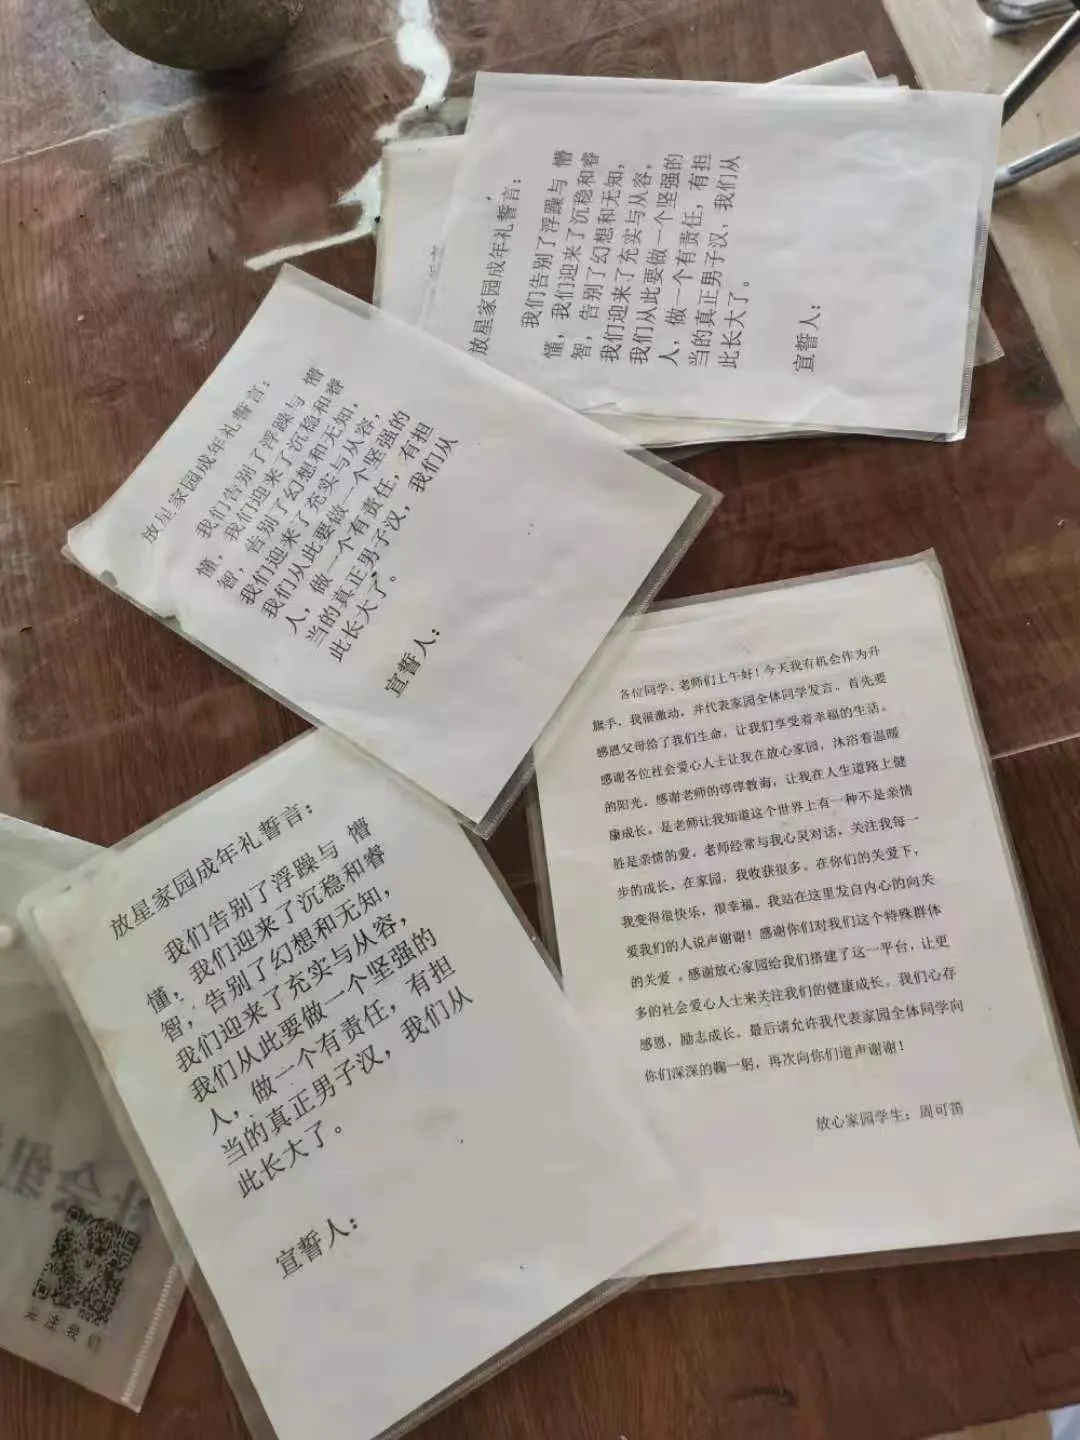 放星家园成年礼誓言：
我们告别了浮躁与 懵
懂，我们迎来了沉稳和睿
智，告别了幻想和无知，
我们迎来了充实与从容，
我们从此要做一个坚强的
人，做一个有责任，有担
当的真正男子汉，我们从
此长大了。
宣誓人：
放星家园成年礼誓言：
我们告别了浮躁与 懵
懂，我们迎来了沉稳和睿
智，告别了幻想和无知，
我们迎来了充实与从容，
我们从此要做一个坚强的
人，做一个有责任，有担
当的真正男子汉，我们从
此长大了。
宣誓人：
放星家园成年礼誓言：
我们告别了浮躁与 懵
懂，我们迎来了沉稳和睿
智，告别了幻想和无知，
我们迎来了充实与从容，
我们从此要做一个坚强的
人，做一个有责任，有担
当的真正男子汉，我们从
此长大了。
宣誓人：
各位同学、老师们上午好！今天我有机会作为升
旗手，我很激动，并代表家园全体同学发言。首先要
感恩父母给了我们生命，让我们享受着幸福的生活。
感谢各位社会爱心人士让我在放心家园，沐浴着温暖
的阳光。感谢老师的谆谆教诲，让我在人生道路上健
康成长。是老师让我知道这个世界上有一种不是亲情
胜是亲情的爱。老师经常与我心灵对话，关注我每一
步的成长。在家园，我收获很多。在你们的关爱下，
我变得很快乐，很幸福。我站在这里发自内心的向关
爱我们的人说声谢谢！感谢你们对我们这个特殊群体
的关爱 。感谢放心家园给我们搭建了这一平台，让更
多的社会爱心人士来关注我们的健康成长。我们心存
感恩，励志成长。最后请允许我代表家园全体同学向
你们深深的鞠一躬，再次向你们道声谢谢！
放心家园学生：周可笛
关注我们